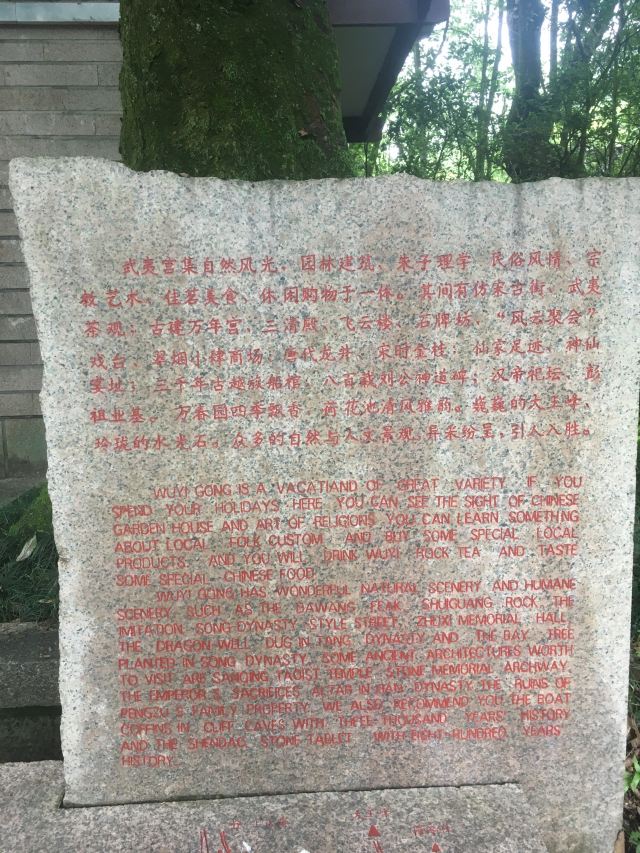 武夷宫集自然风光、园林建筑、朱子理学、民俗风情、宗
教艺术、佳茗美食、休闲购物于一体。其间有仿宋古街、武夷
茶观；古建万年宫、三清殿、飞云楼、石牌坊、“风云聚会”
戏台、翠烟小肆商场；唐代龙井、宋时金桂；仙家足迹、神仙
宴址；三千年古越族船棺，八百载刘公神道碑；汉帝祀坛、彭
祖业基。万春园四季飘香，荷花池清风雅韵。巍巍的大王峰，
玲珑的水光石。众多的自然与人文景观，异采纷呈，引人入胜。
WUYI GONG IS A VACATIAND OF GREAT VARIETY. IF YOU
SPEND YOUR HOLIDAYS HERE YOU CAN SEE THE SIGHT OF CHINESE
GARDEN HOUSE AND ART OF RELIGIONS YOU CAN LEARN SOMETHING
ABOUT LOCAL FOLK CUSTOM AND BUY SOME SPECIAL LOCAL
PRODUCTS AND YOU WILL DRINK WUYI ROCK TEA AND TASTE
SOME SPECIAL CHINESE FOOD
WUYI GONG HAS WONDERFUL NATURAL SCENERY AND HUMANE
SCENERY SUCH AS THE DAWANG PEAK, SHUIGUANG ROCK, THE
IMITATION SONG DYNASTY STYLE STREET, ZHUXI MEMORIAL HALL,
THE DRAGON WELL DUG IN TANG DYNASTY AND THE BAY TREE
PLANTED IN SONG DYNASTY. SOME ANCIENT ARCHITECTURES WORTH
TO VISIT ARE SANQING TAOIST TEMPLE, STONE MEMORIAL ARCHWAY,
THE EMPEROR'S SACRIFICES ALTAR IN HAN DYNASTY THE RUINS OF
PENGZU'S FAMILY PROPERTY. WE ALSO REKOMMEND YOU THE BOAT
COFFINS IN CLIFF CAVES WITH THEEE-THOUSAND YEARS' HISTORY
AND THE SHENDAO STONE TABLET WITH EIGHT-HUNDRED YEARS'
HISTORY.